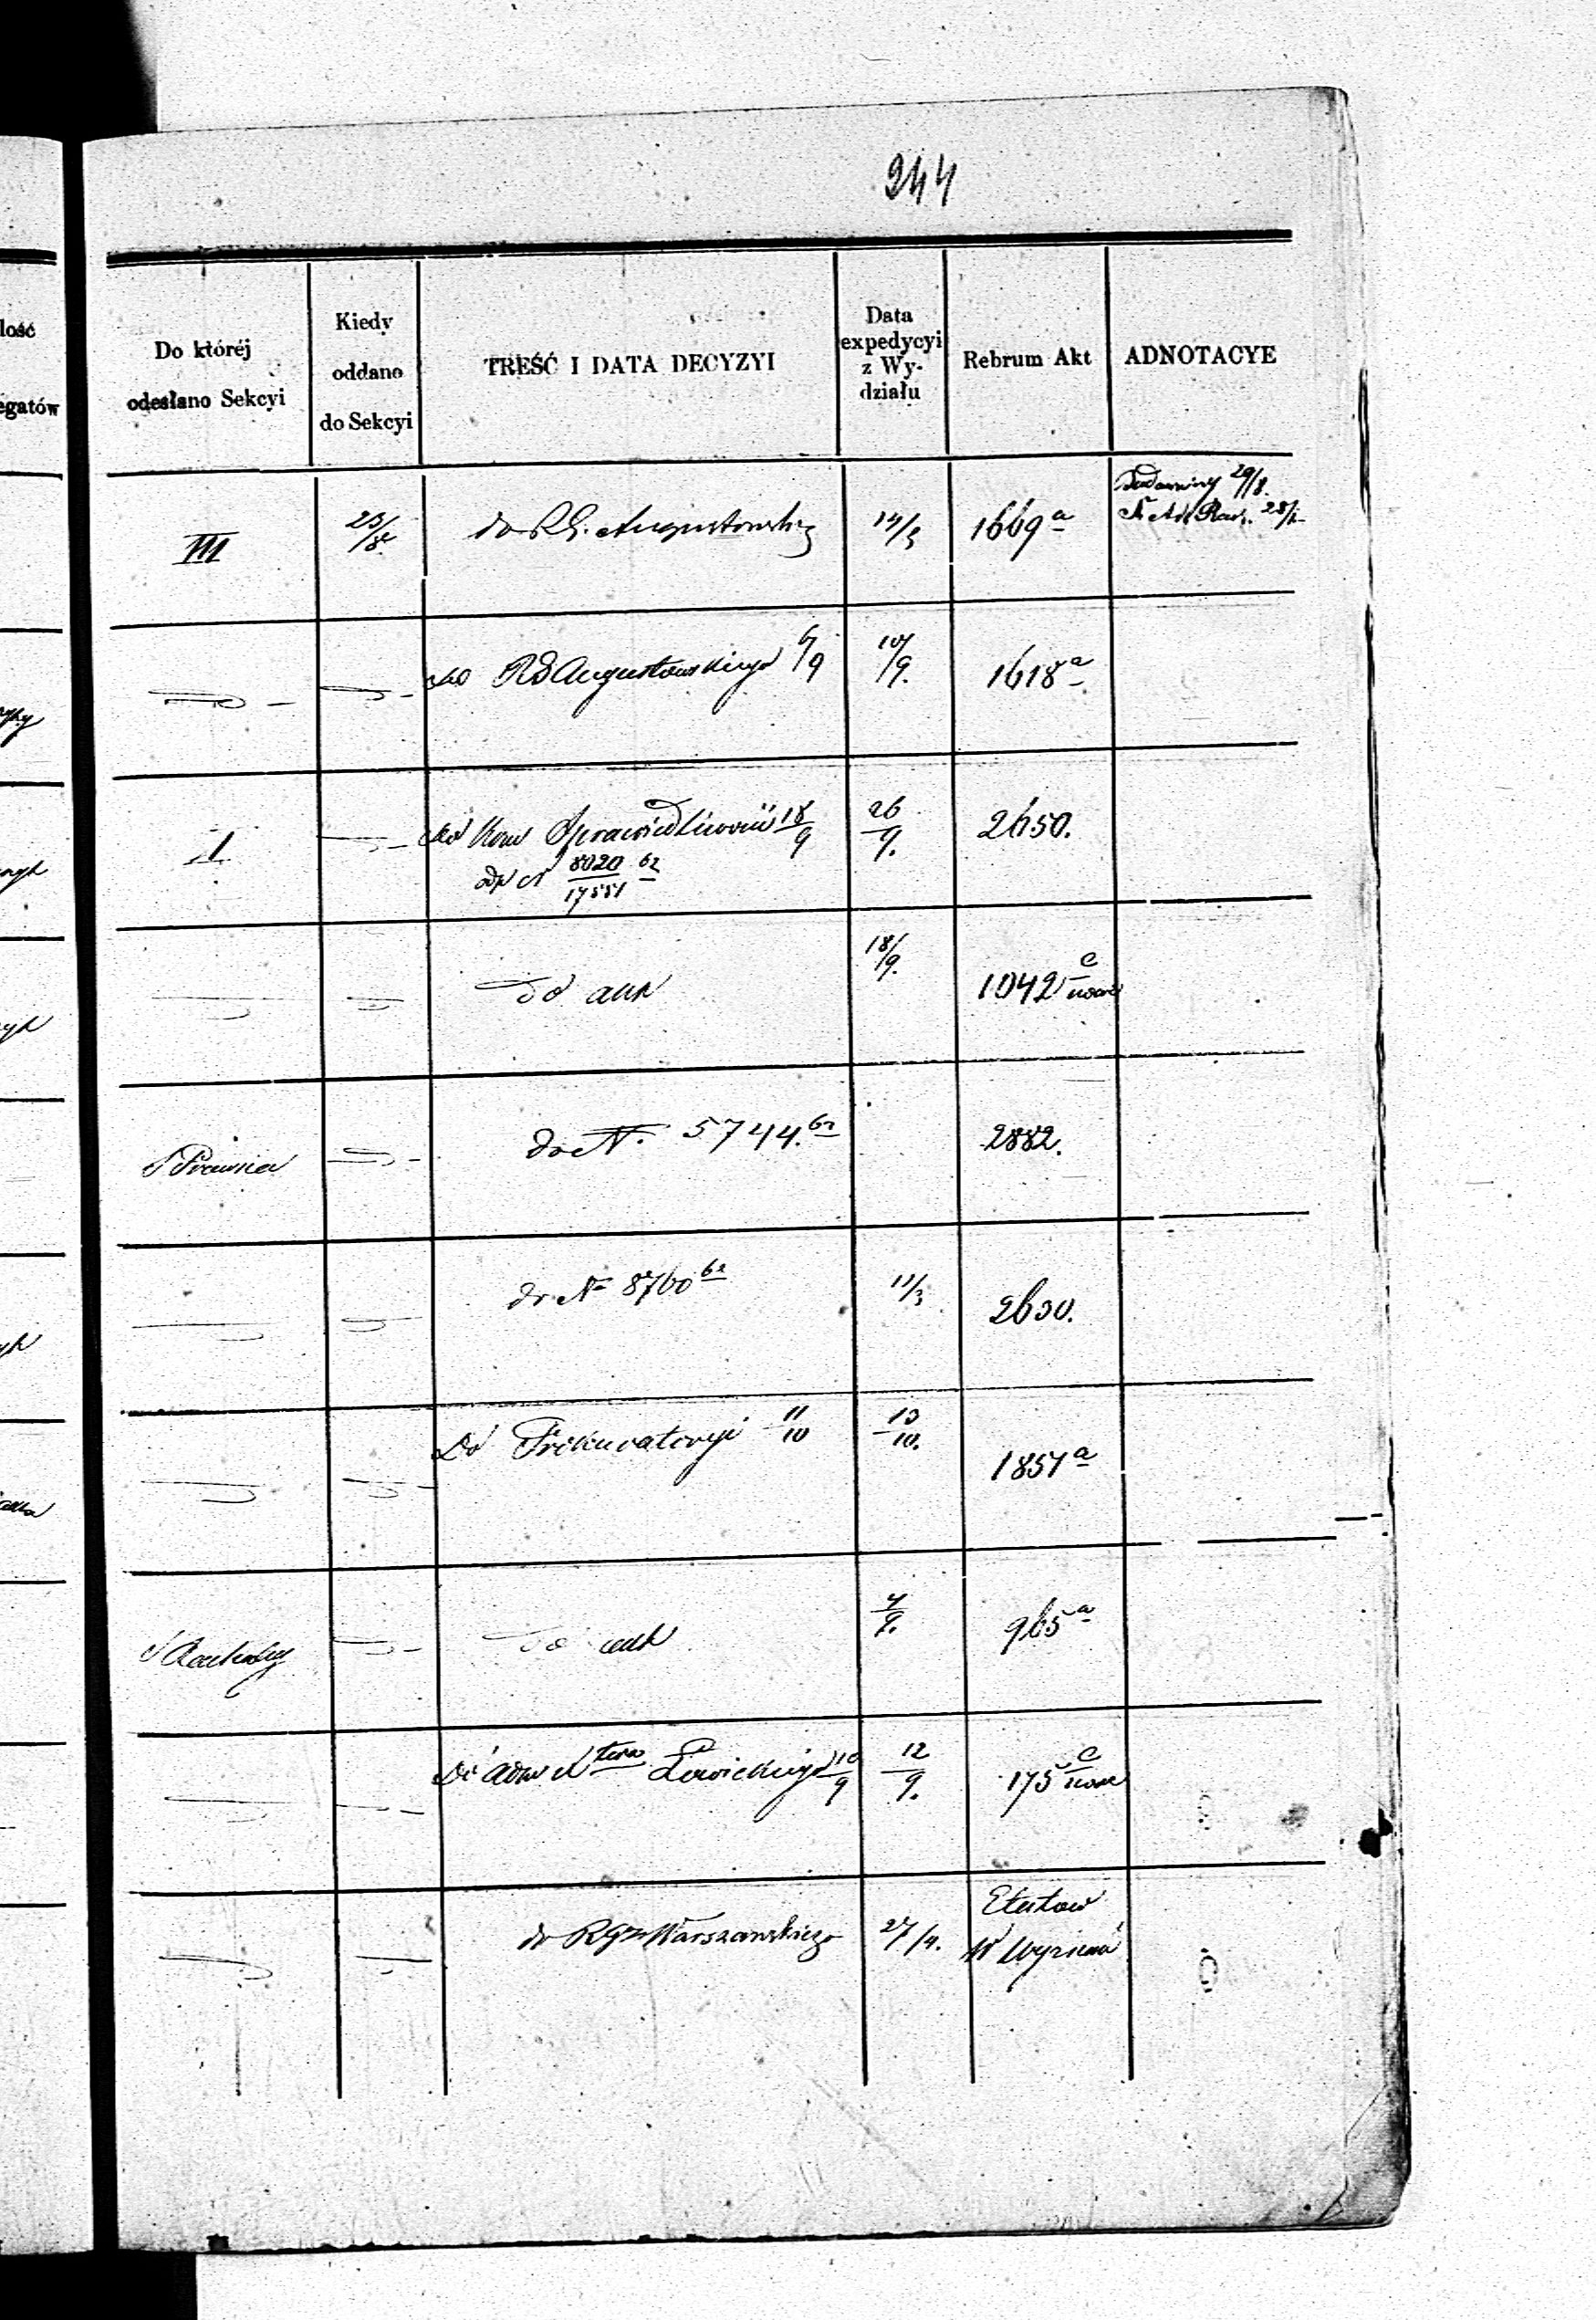 244
lość
egatów
Do któréj
odesłano Sekcyi
Kiedy
oddano
do Sekcyi
TREŚĆ I DATA DECYZYI
Data
expedycyi
z Wy-
działu
Rebrum Akt
ADNOTACYE
III
23/8
do R.G. Augustowskieg
1669 a
29/8.
do RG Augustowskiego 6/9
10/9.
1618 a
I
do Kom Sprawiedliwości 18/9
odp N 8020/17551 62
26/9.
2650.
do akt
18/9.
1042 c
S Prawna
do N. 5744. 62
2882.
do N 8760 62
11/3
2630.
Do Prokuratoryi 11/10
13/10.
1857 a
do akt
4/9.
965 a
Do Adm Łowickiego 10/9
12/9.
175 c
do RGn Warszawskiego
27/4.
Etatow